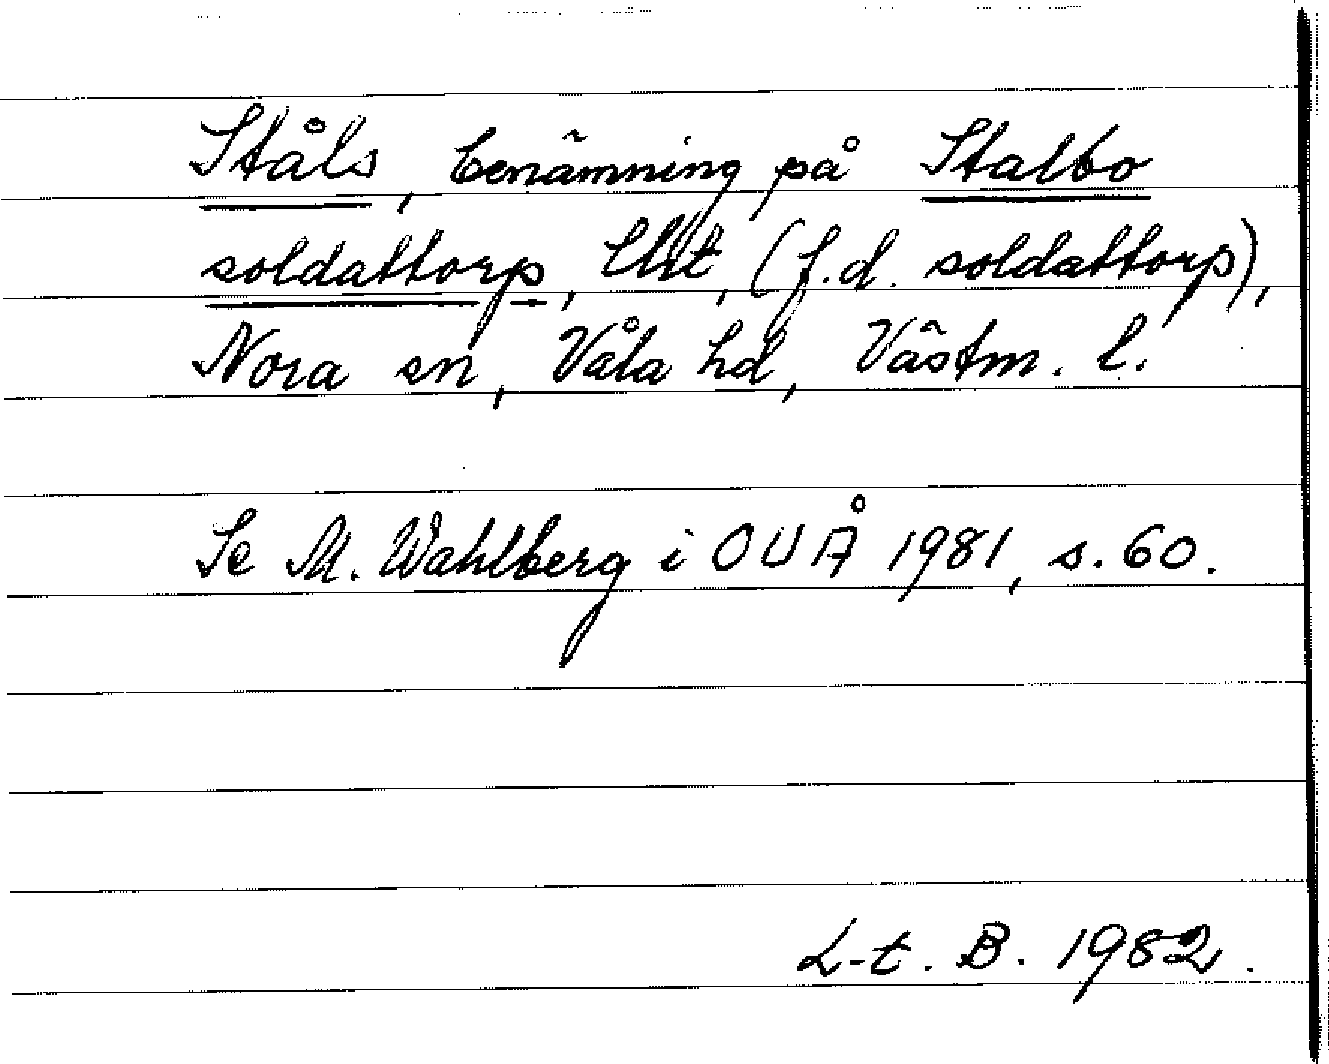 Ståls, benämning på Stalbo
soldattorp, lht, (f.d. soldattorp),
Nora sn, Våla hd, Västm. l.
Se M. Wahlberg i OUÅ 1981, s. 60.
L-t. B. 1982.